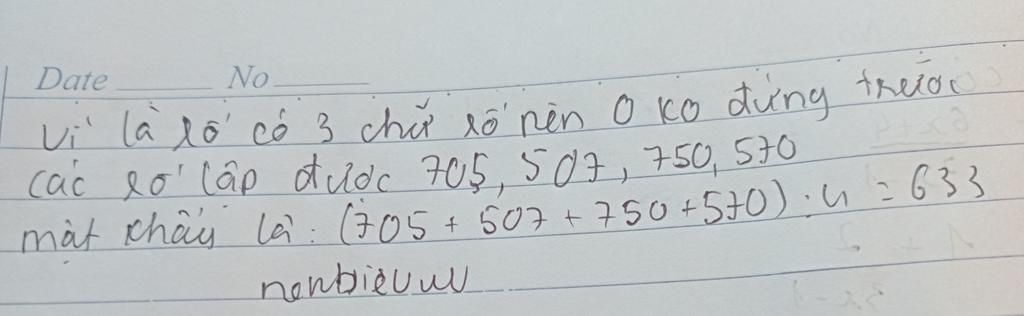 Date No
Vì là số có 3 chữ số nên 0 ko đứng trước
các số lập được 705, 507, 750, 570
mật khẩu là: (705 + 507 + 750 + 570) : 4 = 633